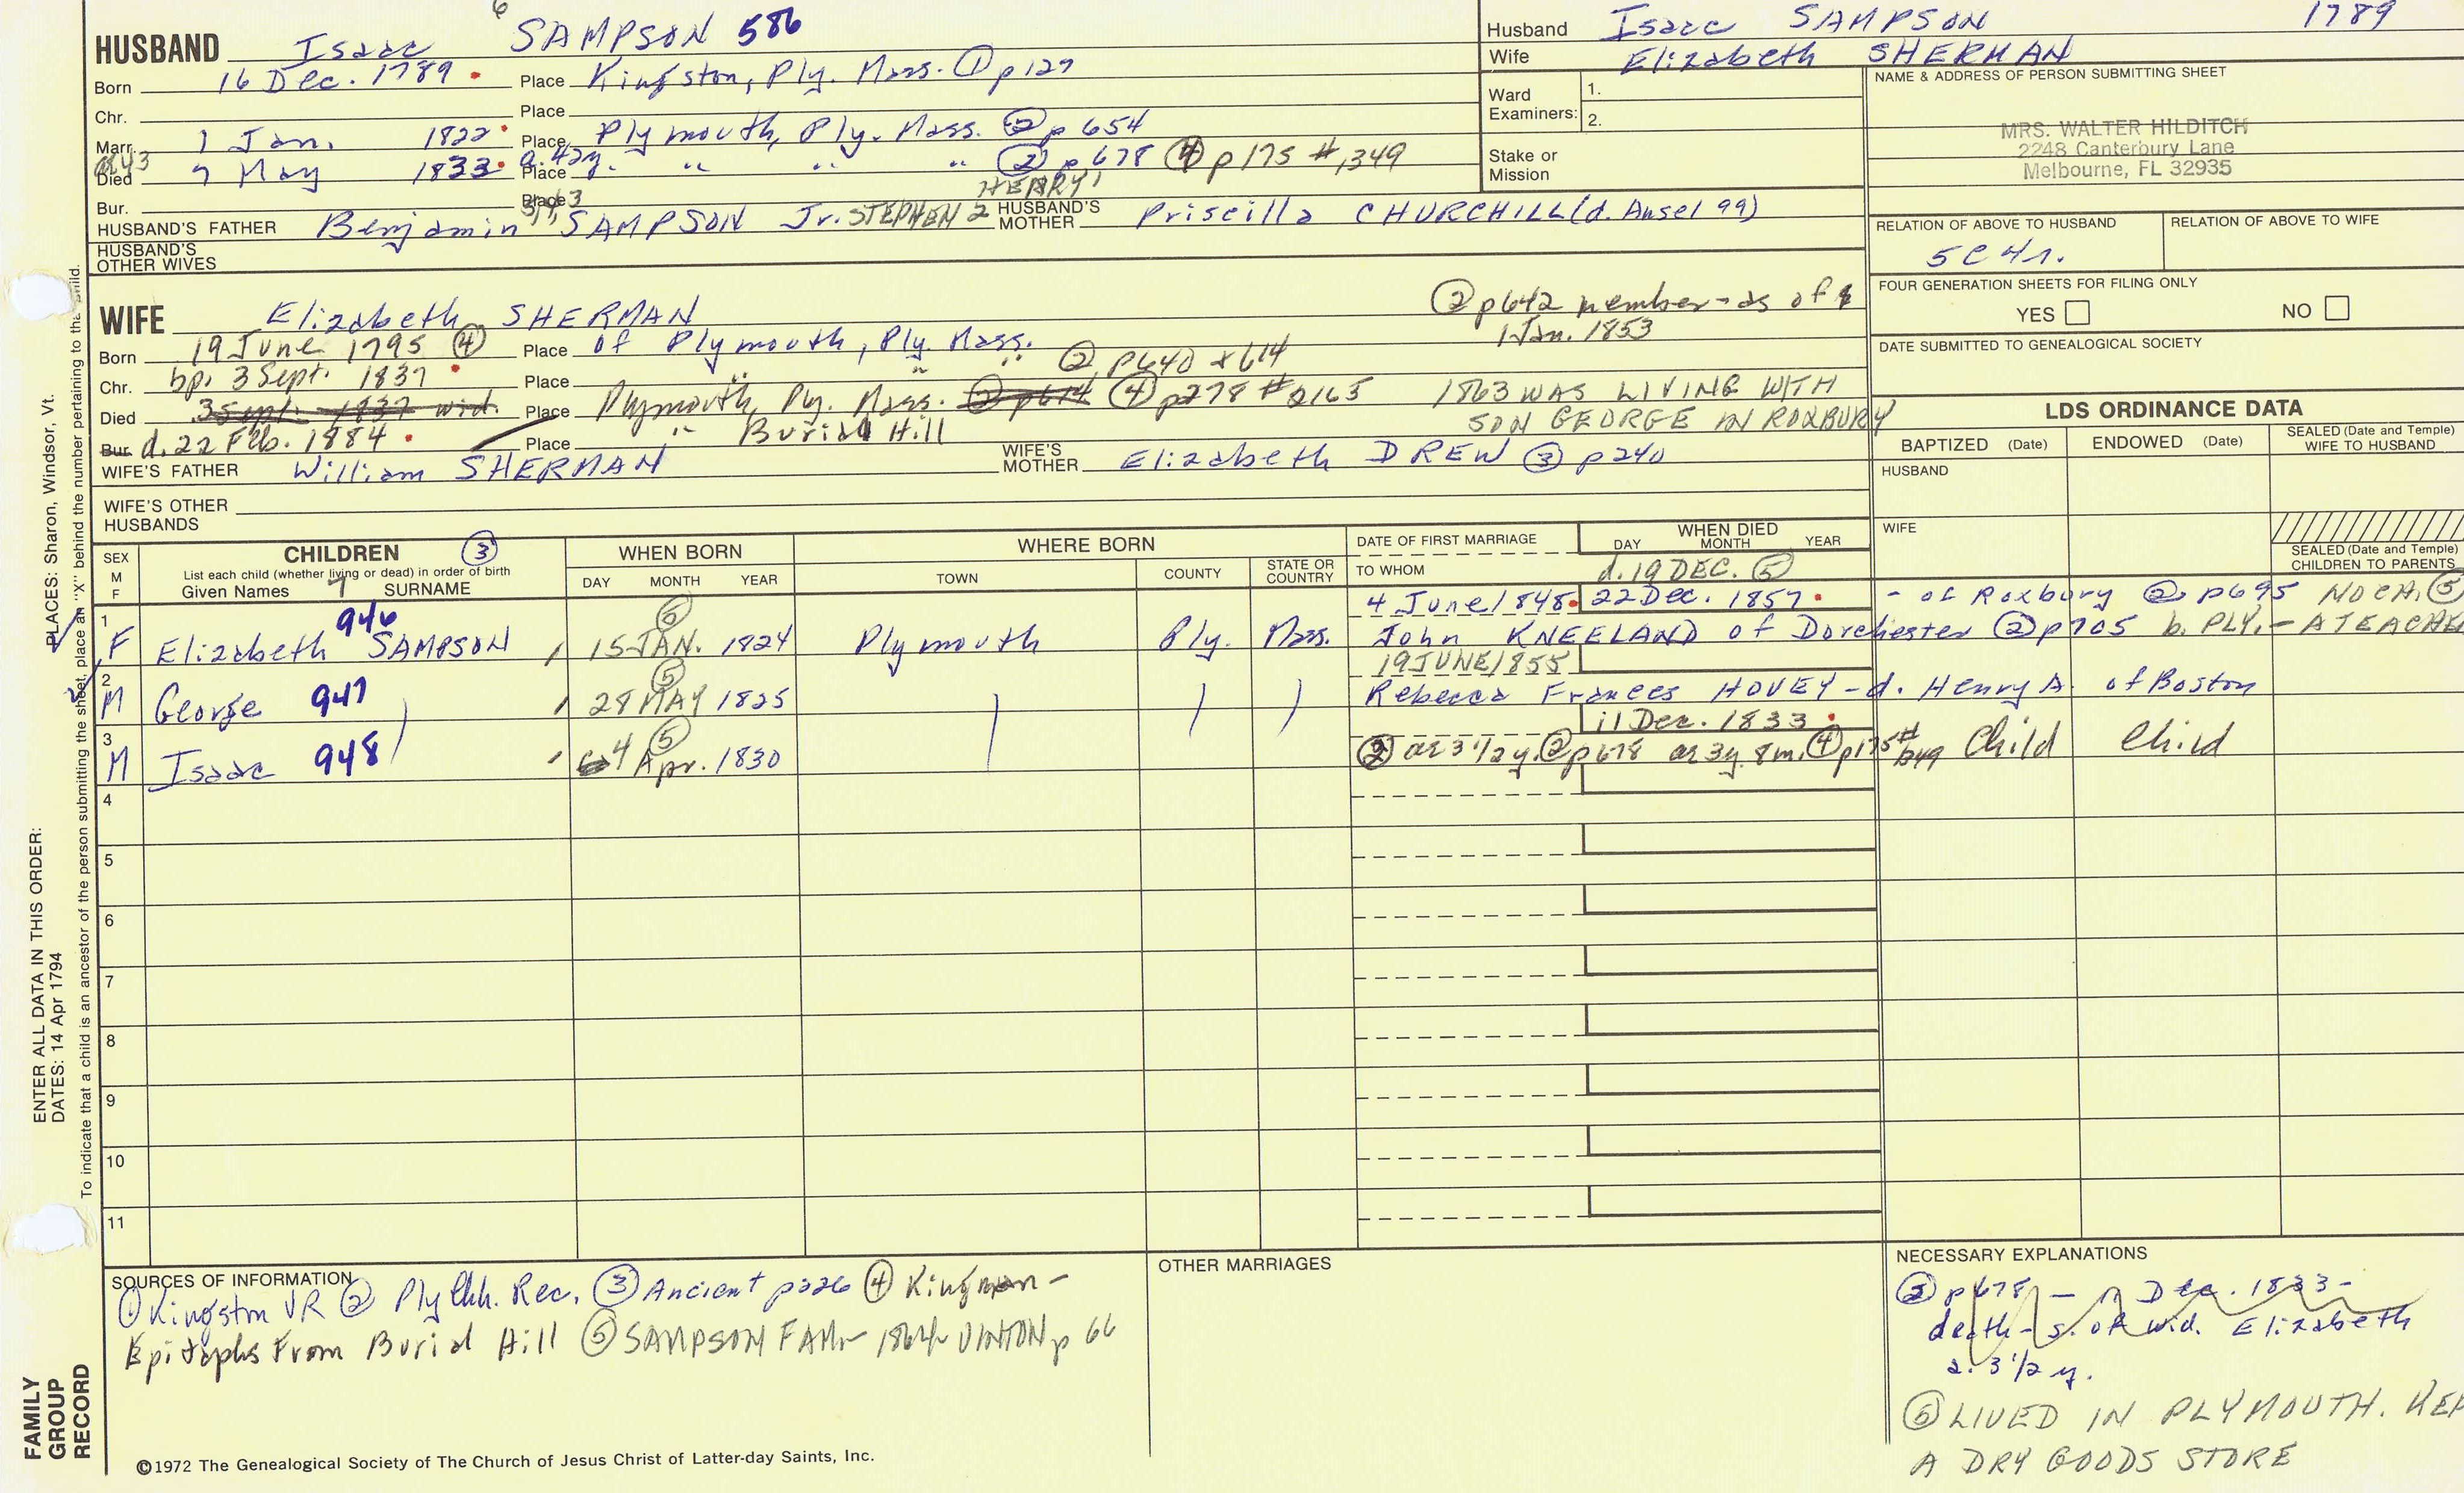 6
HUSBAND Isaac SAMPSON 586
Born 16 Dec. 1789 Place Kingston, Ply. Mass. ① p127
Chr. Place
Marr. 1 Jan. 1822 Place Plymouth, Ply. Mass. ② p 654
a43
Died 7 May 1833 a. 42y. Place " " " ② p 678 ④ p175 #1349
Bur. Place
HENRY1
HUSBAND'S FATHER Benjamin SAMPSON Jr. STEPHEN 2 HUSBAND'S MOTHER Priscilla CHURCHILL (d. Ansel 99)
HUSBAND'S OTHER WIVES
Husband Isaac SAMPSON 1789
Wife Elizabeth SHERMAN
Ward Examiners: 1.
2.
Stake or Mission
NAME & ADDRESS OF PERSON SUBMITTING SHEET
MRS. WALTER HILDITCH
2248 Canterbury Lane
Melbourne, FL 32935
RELATION OF ABOVE TO HUSBAND RELATION OF ABOVE TO WIFE
5C4r.
FOUR GENERATION SHEETS FOR FILING ONLY
YES NO
DATE SUBMITTED TO GENEALOGICAL SOCIETY
WIFE Elizabeth SHERMAN
② p642 member-as of
1 Jan. 1853
Born 19 June 1795 ④ Place of Plymouth, Ply. Mass.
Chr. bp. 3 Sept. 1837 Place " " ② p640 + 614
Died 3 Sept. 1837 wid. Place Plymouth, Ply. Mass. ② p614 ④ p278 #2165
1863 WAS LIVING WITH
SON GEORGE IN ROXBURY
Bur. d. 22 Feb. 1884 Place " Burial Hill
WIFE'S FATHER William SHERMAN WIFE'S MOTHER Elizabeth DREW ③ p240
WIFE'S OTHER HUSBANDS
LDS ORDINANCE DATA
BAPTIZED (Date) ENDOWED (Date) SEALED (Date and Temple) WIFE TO HUSBAND
HUSBAND
WIFE
SEALED (Date and Temple) CHILDREN TO PARENTS
SEX M F
CHILDREN ③
List each child (whether living or dead) in order of birth
Given Names SURNAME
7
WHEN BORN
DAY MONTH YEAR
WHERE BORN
TOWN COUNTY STATE OR COUNTRY
DATE OF FIRST MARRIAGE
TO WHOM
WHEN DIED
DAY MONTH YEAR
d. 19 DEC. ⑤
4 June 1848 22 Dec. 1857 - of Roxbury ② p695 NO CH. ⑤
1 F Elizabeth SAMPSON 946 ⑤ 15 JAN. 1824 Plymouth Ply. Mass. John KNEELAND of Dorchester ② p705 b. PLY. - A TEACHE
19 JUNE 1855
2 M George 947 ⑤ 28 MAY 1825 Rebecca Frances HOVEY - d. Henry A. of Boston
11 Dec. 1833
3 M Isaac 948 ⑤ 4 Apr. 1830 ② ae 3 1/2 y. ② p678 ae 3y. 8m. ④ p175 # Child Child
4
5
6
7
8
9
10
11
SOURCES OF INFORMATION
① Kingston VR ② Ply Chh. Rec. ③ Ancient p226 ④ Kingman -
Epitaphs From Burial Hill ⑤ SAMPSON FAM - 1864 VINTON p 66
OTHER MARRIAGES
NECESSARY EXPLANATIONS
② p678 - 11 Dec. 1833 -
death - s. of wid. Elizabeth
a. 3 1/2 y.
⑤ LIVED IN PLYMOUTH. KEP
A DRY GOODS STORE
©1972 The Genealogical Society of The Church of Jesus Christ of Latter-day Saints, Inc.
FAMILY GROUP RECORD
ENTER ALL DATA IN THIS ORDER:
DATES: 14 Apr 1794
PLACES: Sharon, Windsor, Vt.
To indicate that a child is an ancestor of the person submitting the sheet, place an "X" behind the number pertaining to the child.